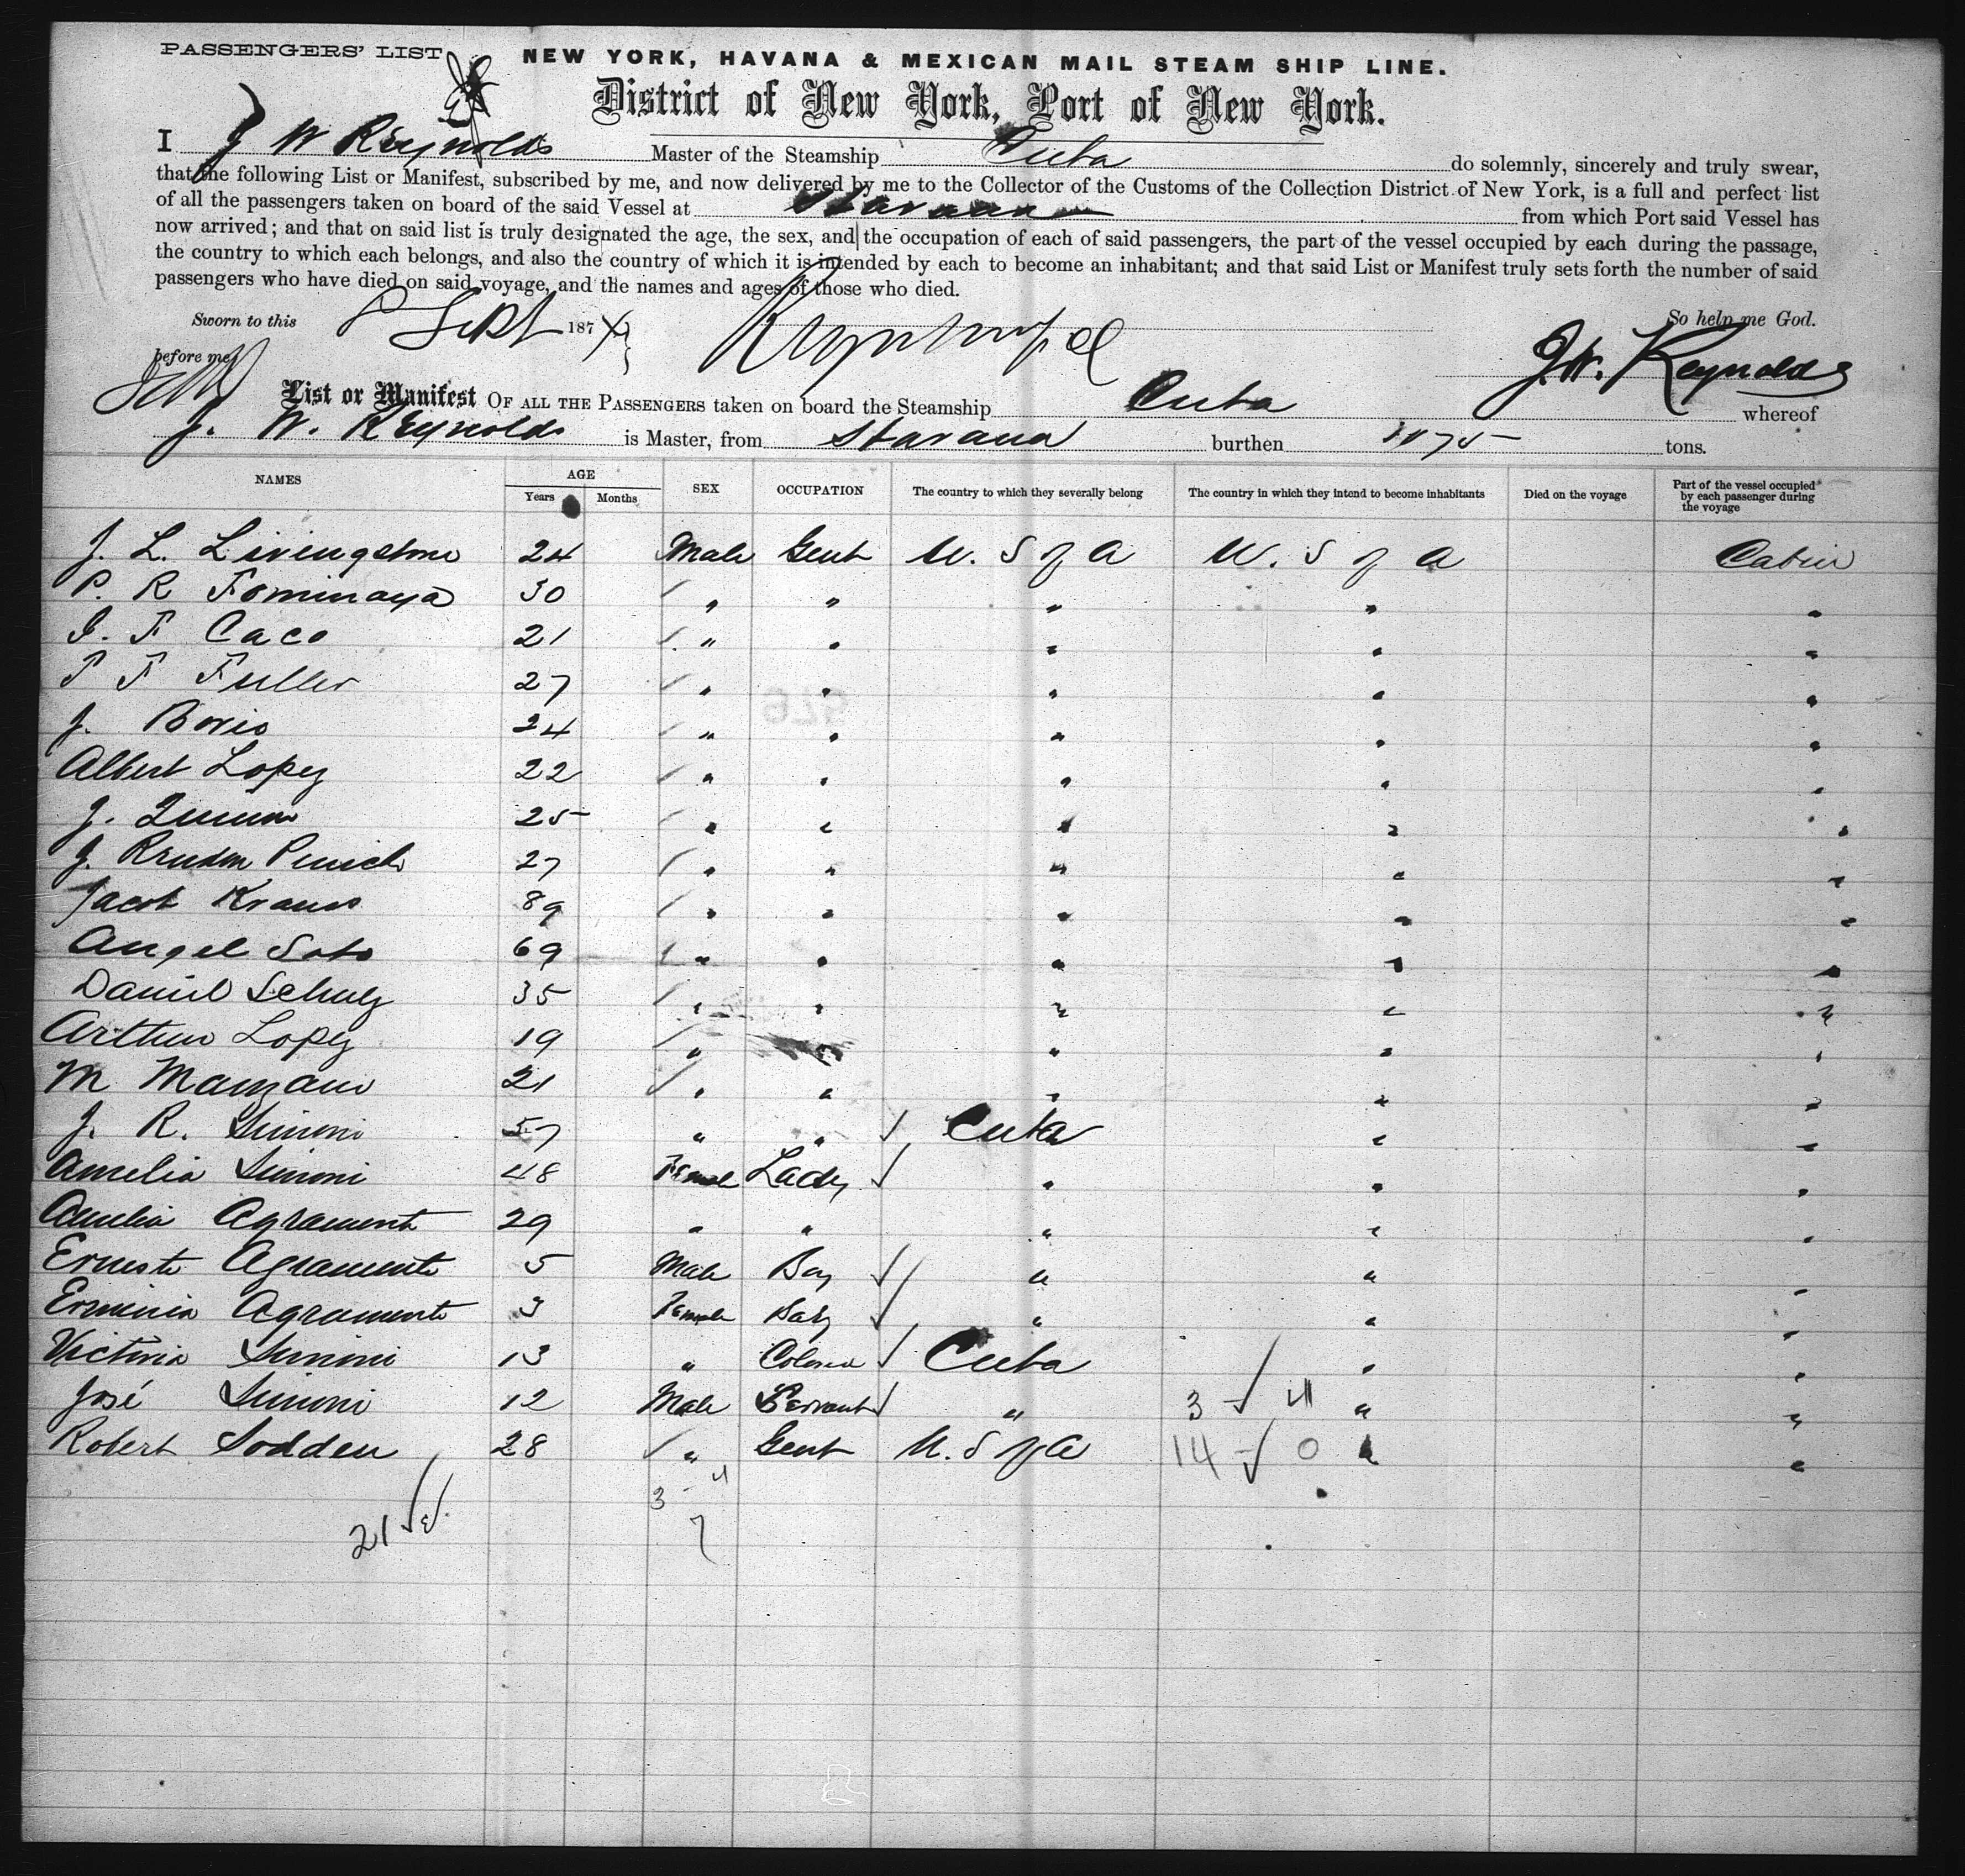 PASSENGERS' LIST
NEW YORK, HAVANA & MEXICAN MAIL STEAM SHIP LINE.
District of New York, Port of New York.
I J W Reynolds Master of the Steamship Cuba do solemnly, sincerely and truly swear,
that the following List or Manifest, subscribed by me, and now delivered by me to the Collector of the Customs of the Collection District of New York, is a full and perfect list
of all the passengers taken on board of the said Vessel at Havana from which Port said Vessel has
now arrived; and that on said list is truly designated the age, the sex, and the occupation of each of said passengers, the part of the vessel occupied by each during the passage,
the country to which each belongs, and also the country of which it is intended by each to become an inhabitant; and that said List or Manifest truly sets forth the number of said
passengers who have died on said voyage, and the names and ages of those who died.
Sworn to this Sept 187 So help me God.
before me J. W. Reynolds
List or Manifest OF ALL THE PASSENGERS taken on board the Steamship Cuba whereof
J. W. Reynolds is Master, from Havana burthen tons.
NAMES AGE Years Months SEX OCCUPATION The country to which they severally belong The country in which they intend to become inhabitants Died on the voyage Part of the vessel occupied by each passenger during the voyage
J. L. Livingstone 24 Male Gent U. S of A U. S of A Cabin
P. R Fominaya 30 " " " " "
F Caco 21 " " " " "
F Fuller 27 " " " " "
J. 24 " " " " "
Albert Lopez 22 " " " " "
J. 25 " " " " "
J. 27 " " " " "
Jacob Kraus 89 " " " " "
Angel Soto 69 " " " " "
Daniel Schulz 35 " " " " "
Arthur Lopez 19 " " " " "
M Manzano 21 " " " " "
J. R. Simoni 57 " " Cuba " "
Amelia Simoni 48 Female Lady " " "
Amelia Agramonte 29 " " " " "
Ernesto Agramonte 5 Male Boy " " "
Erminia Agramonte 3 Female Baby " " "
Victoria Simoni 13 " Colored Cuba " "
José Simoni 12 Male Servant " 3 4 " "
Robert Sodden 28 " Gent U. S of A 14 0 " "
3 4
21
7